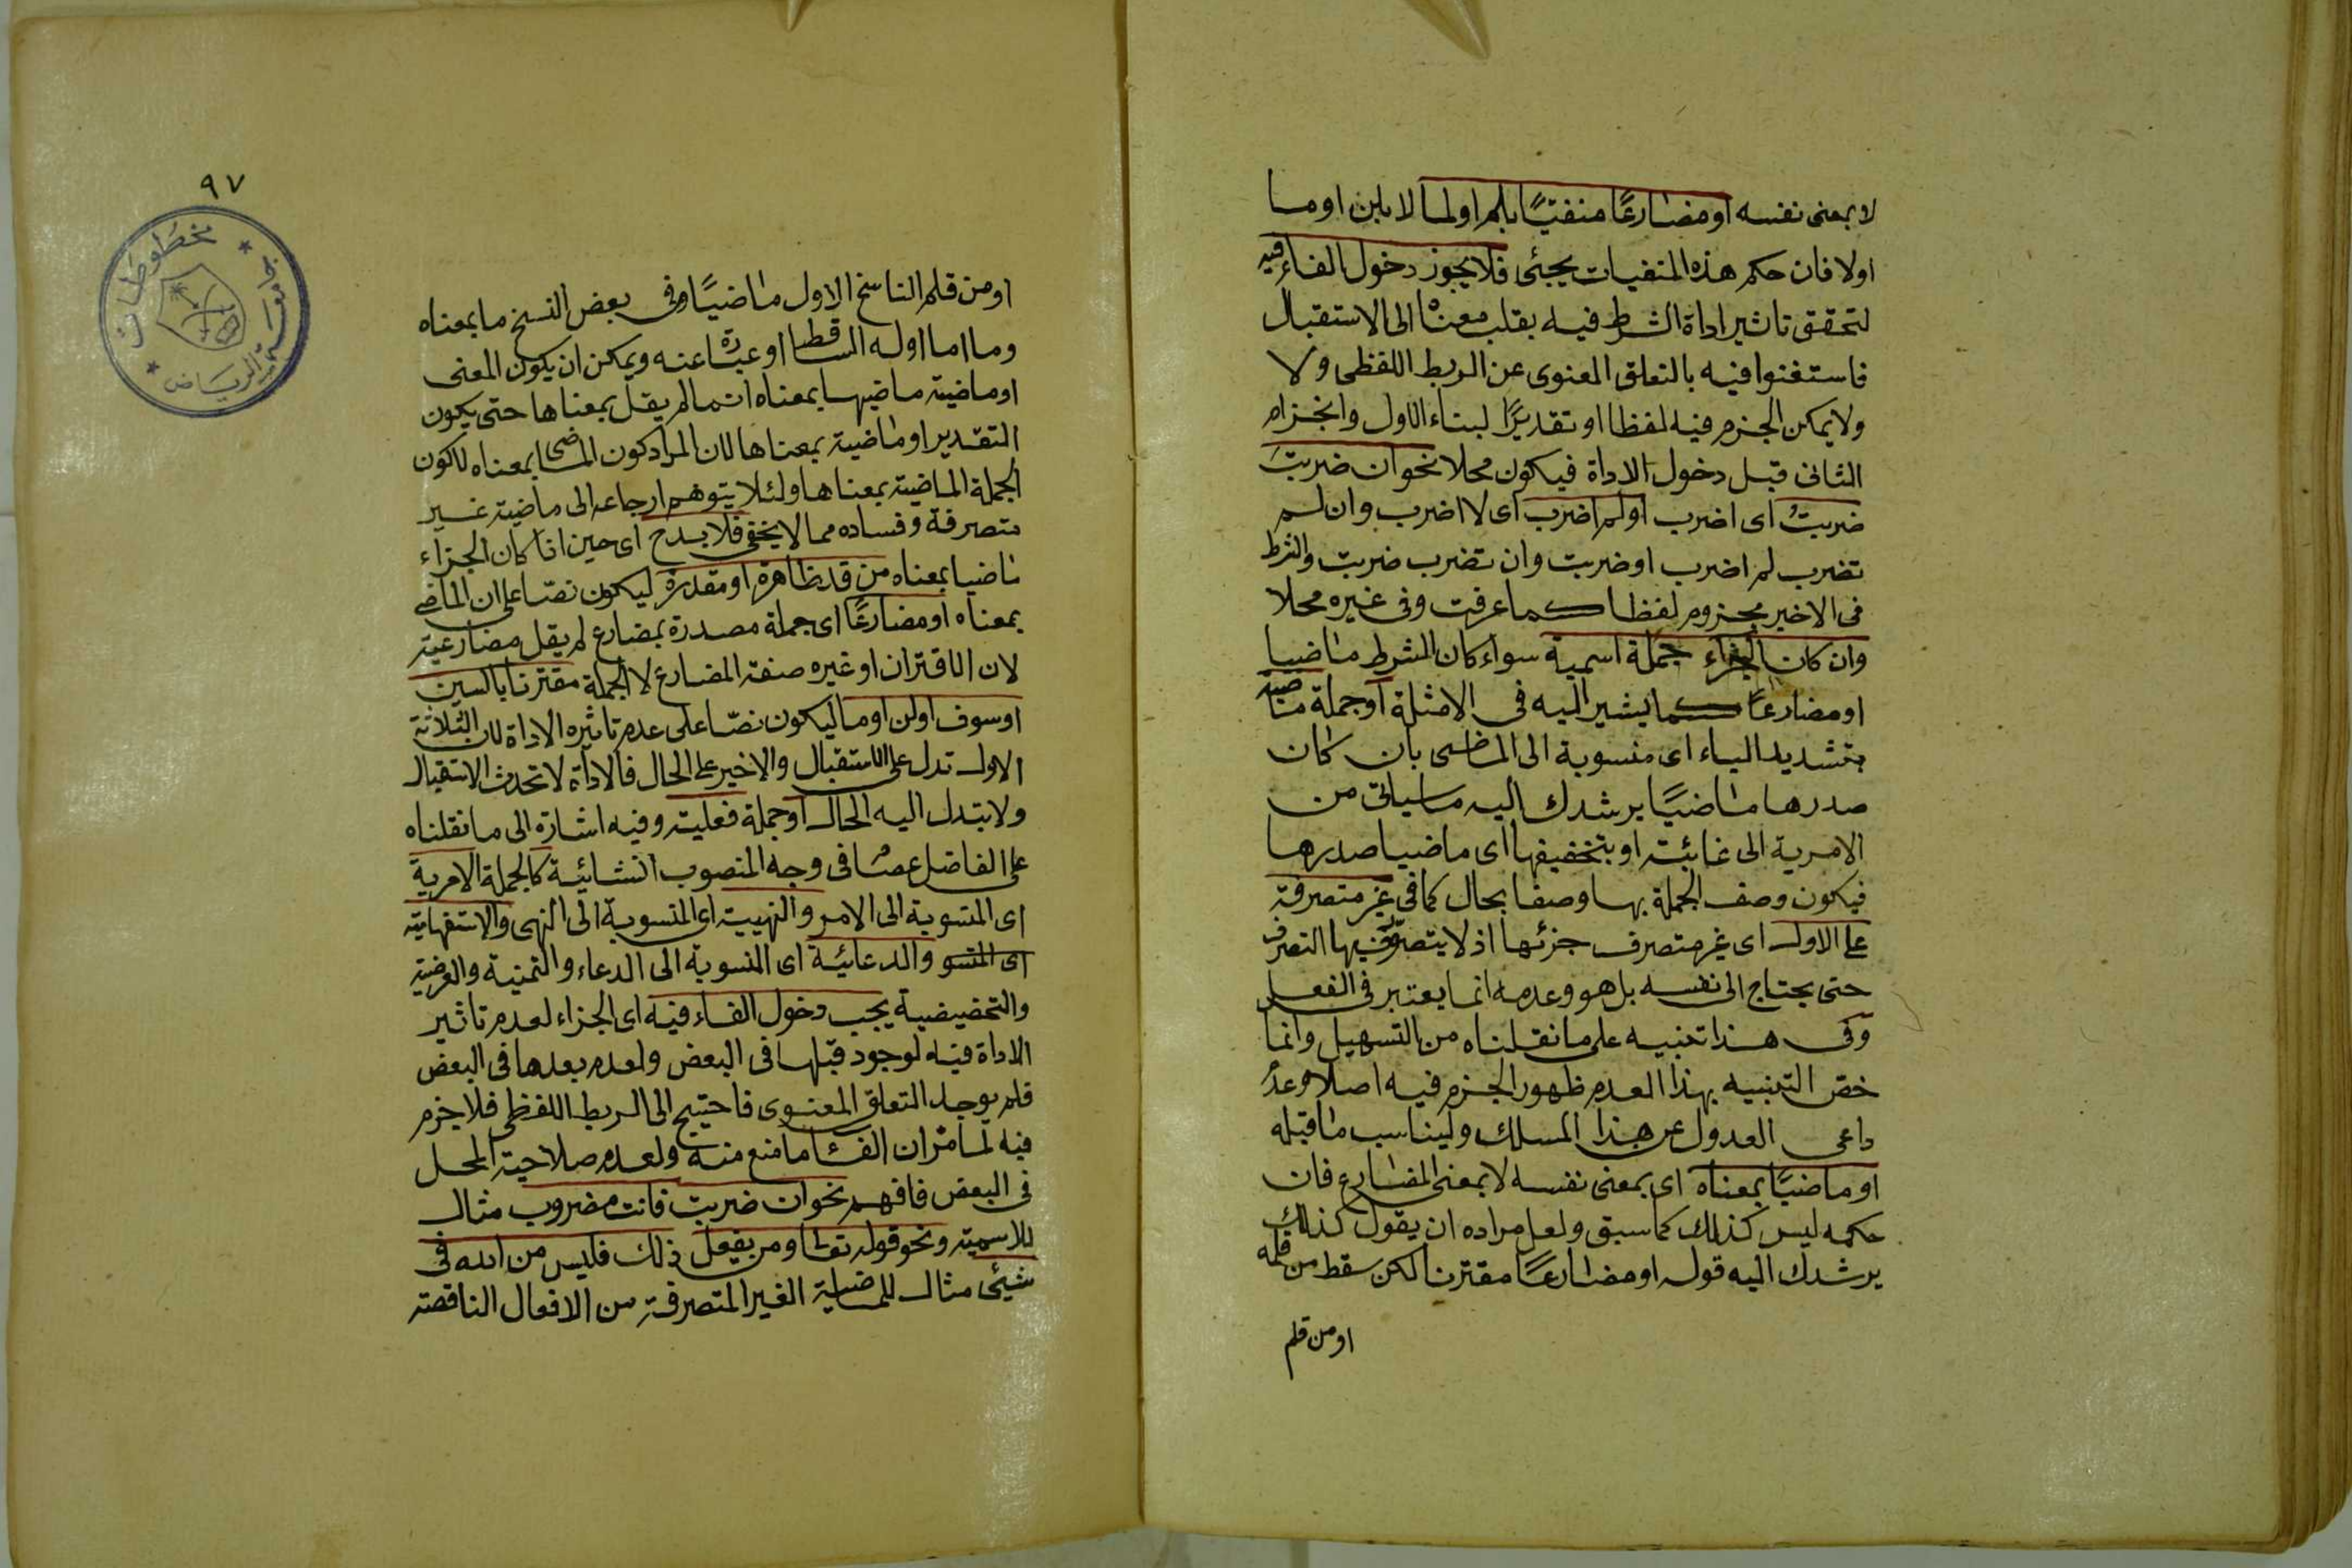 لا بمعنى نفسه او مضارعًا منفيًا بلم او لما لا بلن او ما
اولا فان حكم هذه المنفيات يجئى فلا يجوز دخول الفاء فيه
لتحقق تاثير اداة الشرط فيه بقلب معناه الى الاستقبال
فاستغنوا فيه بالتعلق المعنوى عن الربط اللفظى ولا
ولا يمكن الجزم فيه لفظا او تقديرًا لبناء الاول وانجزام
الثانى قبل دخول الاداة فيكون محلا نحو ان ضربتَ
ضربتُ اى اضرب او لم اضرب اى لا اضرب وان لم
تضرب لم اضرب او ضربت وان تضرب ضربت والشرط
فى الاخير مجزوم لفظا كما عرفت وفى غيره محلا
وان كان الجزاء جملة اسمية سواء كان الشرط ماضيا
او مضارعًا كما يشير اليه فى الامثلة او جملة ماضية
بتشديد الياء اى منسوبة الى الماضى بان كان
صدرها ماضيًا يرشدك اليه ما سياتى من
الامرية الى غائيته او بتخفيفها اى ماضيا صدرها
فيكون وصف الجملة بها وصفا بحال كما فى غير متصرفة
على الاول اى غير متصرف جزئها اذ لا يتصور فيها التصرف
حتى يحتاج الى نفسه بل هو وعدمه انما يعتبر فى الفعل
وفى هذا تنبيه على ما نقلناه من التسهيل وانما
خص التنبيه بهذا لعدم ظهور الجزم فيه اصلا وعدم
داعى العدول عن هذا المسلك وليناسب ما قبله
او ماضيًا بمعناه اى بمعنى نفسه لا بمعنى المضارع فان
حكمه ليس كذلك كما سبق ولعل مراده ان يقول كذلك
يرشدك اليه قوله او مضارعًا مقترنا لكن سقط من قلمه
او من قلم
٩٧
مخطوطات
جامعة الرياض
او من قلم الناسخ الاول ماضيًا وفى بعض النسخ ما بمعناه
وما اما اوله الساقط او عبارة عنه ويمكن ان يكون المعنى
او ماضية ماضيها بمعناه انما لم يقل بمعناها حتى يكون
التقدير او ماضية بمعناها لان المراد كون الماضى بمعناه لا كون
الجملة الماضية بمعناها ولئلا يتوهم ارجاعه الى ماضية غير
متصرفة وفساده مما لا يخفى فلا بد ح اى حين اذا كان الجزاء
ماضيا بمعناه من قد ظاهرة او مقدرة ليكون نصّا على ان الماضى
بمعناه او مضارعًا اى جملة مصدرة بمضارع لم يقل مضارعية
لان الاقتران او غيره صفة المضارع لا الجملة مقترنا بالسين
او سوف او لن او ما ليكون نصّا على عدم تاثيره الاداة لان الثلاثة
الاول تدل على الاستقبال والاخير على الحال فالاداة لا تحدث الاستقبال
ولا يتبدل اليه الحال او جملة فعلية وفيه اشارة الى ما نقلناه
على الفاضل عصام فى وجه المنصوب انشائية كالجملة الامرية
اى المنسوبة الى الامر والنهيية اى المنسوبة الى النهى والاستفهامية
اى المنسو والدعائية اى المنسوبة الى الدعاء والتمنية والعرضية
والتحضيضية يجب دخول الفاء فيه اى الجزاء لعدم تاثير
الاداة فيه لوجود قبلها فى البعض ولعدم بعدها فى البعض
فلم يوجد التعلق المعنوى فاحتيج الى الربط اللفظى فلا جزم
فيه لما مر ان الفاء ما منع منه ولعدم صلاحية المحل
فى البعض فافهم نحو ان ضربت فانت مضروب مثال
للاسمية ونحو قوله تعالى ومن يفعل ذلك فليس من الله فى
شيئى مثال للماضية الغير المتصرفة من الافعال الناقصة